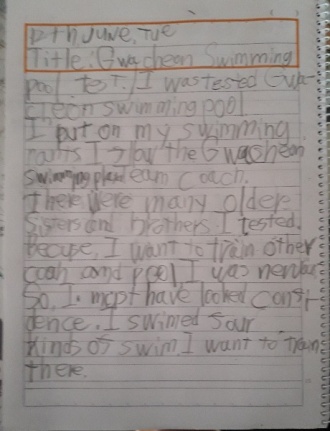 12th June, Tue
Title: Gwacheon Swimming
pool test. I was tested Gwa-
cheon swimming pool
I put on my swimming
pants I the Gwacheon
swimming team coach.
There were many older
sisters and brothers I tested.
Becuse, I want to train other
coah and pool I was nervus
So, I have looked confi
dence. I swimed four
kinds of swim. I want to train
there.